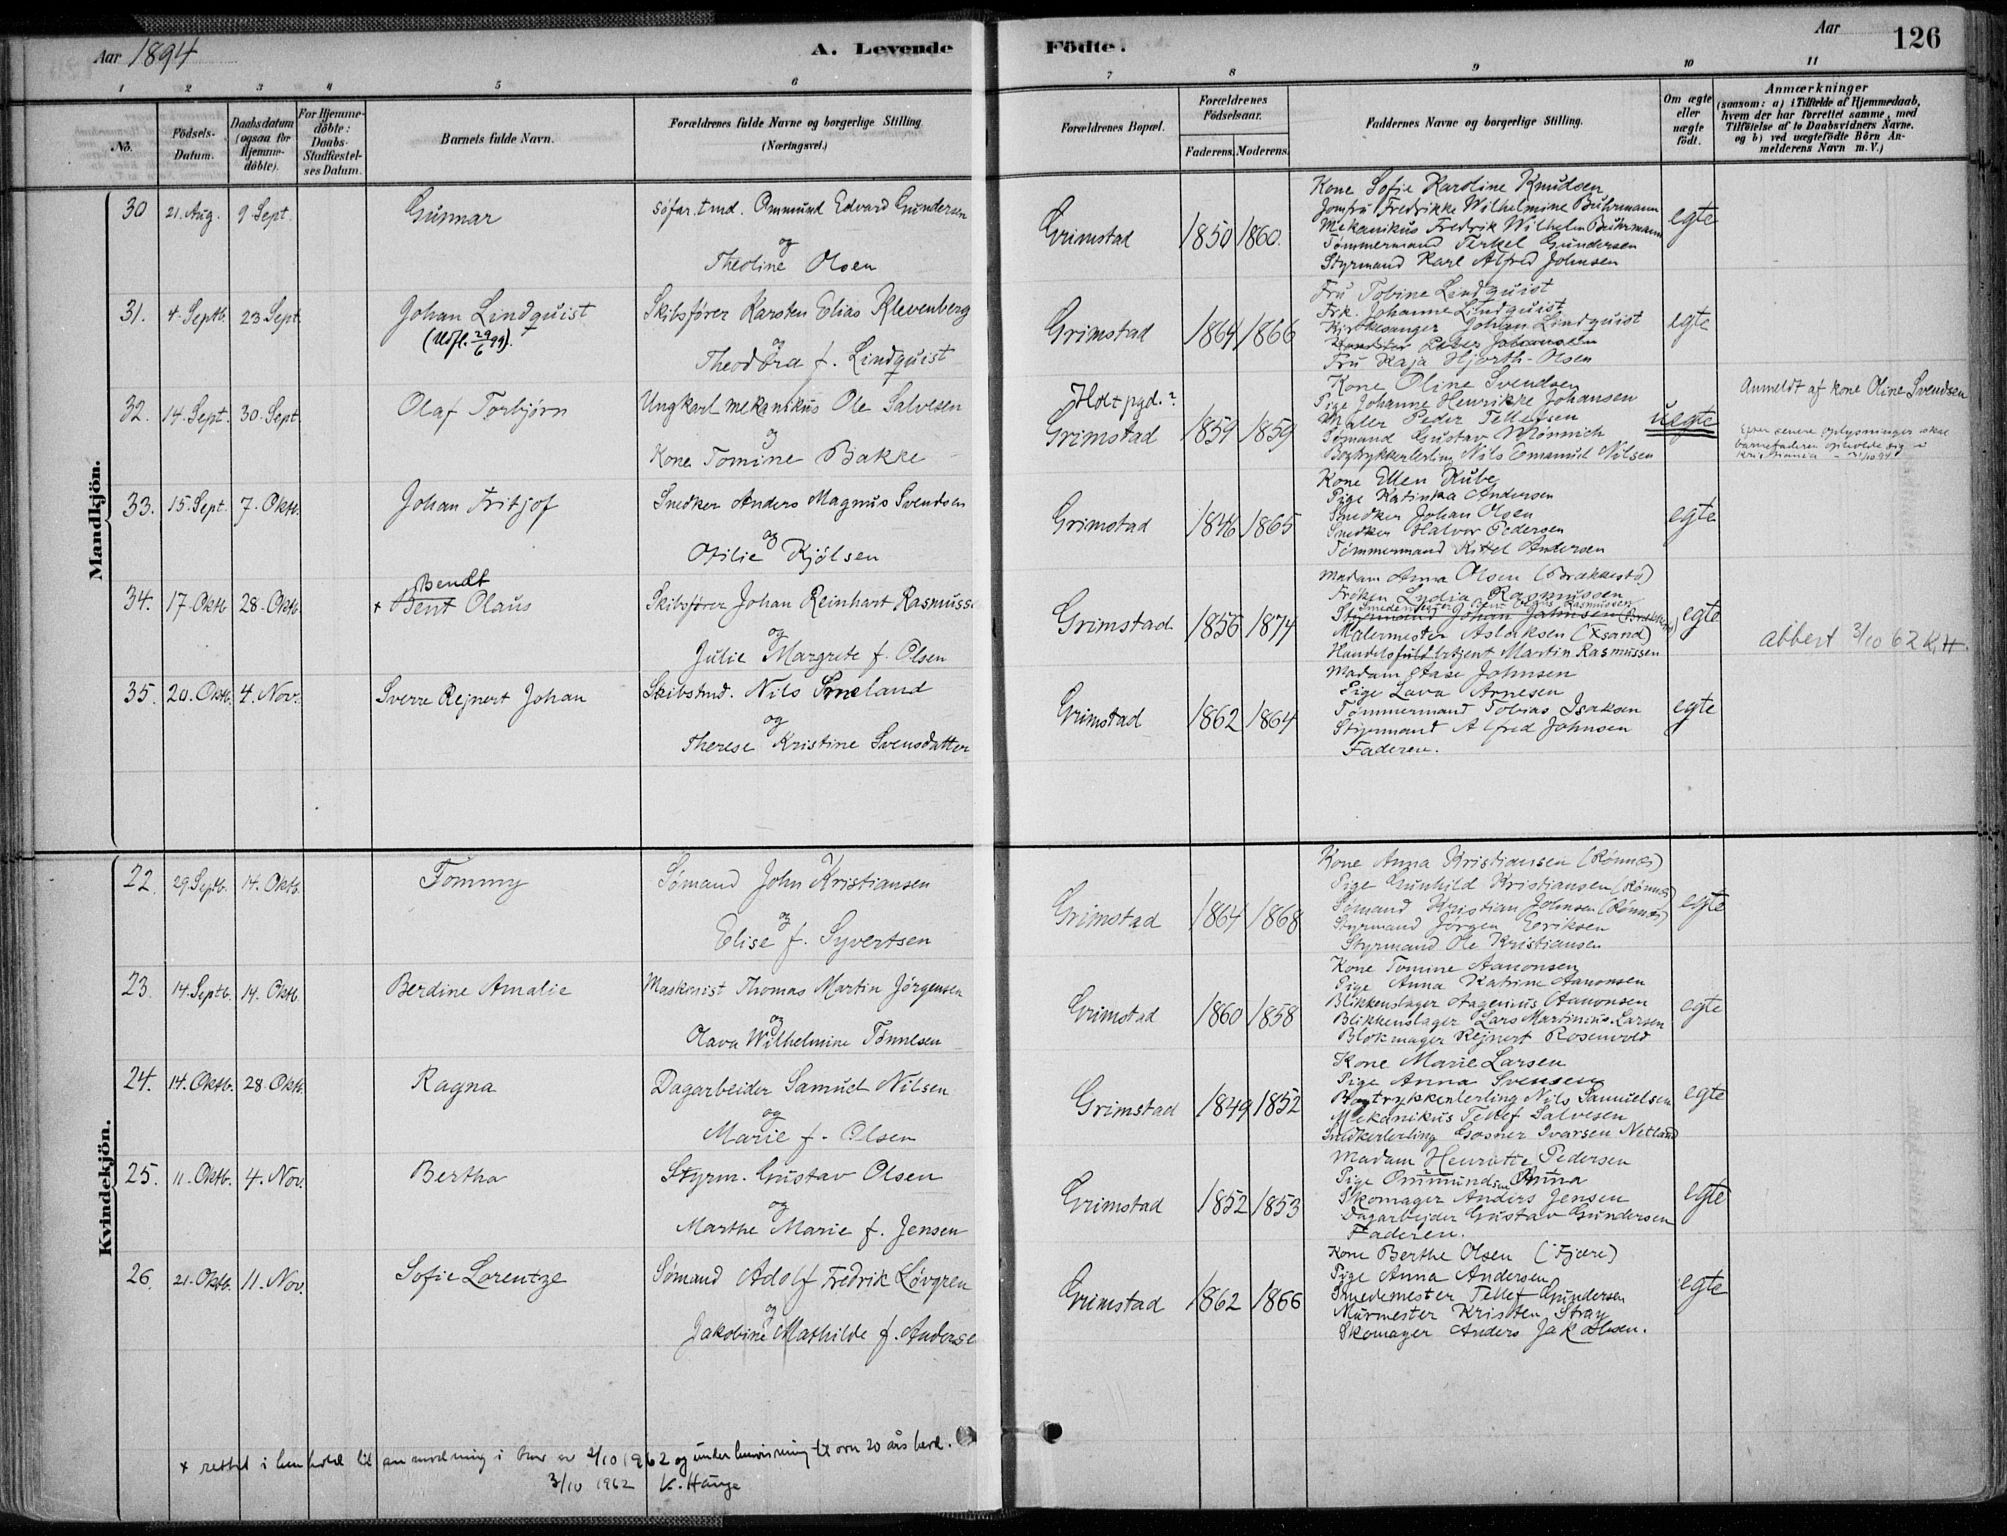 Aar 1894
A. Levende Födte.
Aar
126
1 2 3 4 5 6 7 8 9 10 11
No.
Födsels-Datum.
Daabsdatum (ogsaa for Hjemmedöbte).
For Hjemmedöbte: Daabs-Stadfæstelses Datum.
Barnets fulde Navn.
Forældrenes fulde Navne og borgerlige Stilling. (Næringsvei.)
Forældrenes Bopæl.
Forældrenes Fødselsaar.
Faderens. Moderens.
Faddernes Navne og borgerlige Stilling.
Om ægte eller uægte født.
Anmærkninger
(saasom: a) i Tilfælde af Hjemmedaab, hvem der har forrettet samme, med Tilföielse af to Daabsvidners Navne. og b) ved uægtefödte Börn Anmelderens Navn m. V.)
Mandkjön.
30 21. Aug. 9 Sept. Gunnar
Söfar. tmd. Ommund Edvard Gundersen
og
Theoline Olsen
Grimstad 1850 1860.
Kone Sofie Karoline Knudsen
Jomfru Fredrikke Wilhelmine Buhrmann
Mekanikus Fredrik Wilhelm Buhrmann
Tømmermand Terkel Gundersen
Styrmand Karl Alfred Johnsen
egte
31. 4. Septb. 23 Sept. Johan Lindquist
(Udfl. 29/6 99).
Skibsfører Karsten Elias Klevenberg
og
Theodora f. Lindquist
Grimstad 1864 1866
Fru Tobine Lindquist
Frk. Johanne Lindquist
Kirkesanger Johan Lindquist
Peder Johansen
Fru Kaja Hjorth-Olsen
egte
32. 14 Sept. 30 Sept. Olaf Torbjørn
Ungkarl mekanikus Ole Salvesen
og
Kone Tomine Bakke
Holt pgd.?
Grimstad 1859 1859
Kone Oline Svendsen
Pige Johanne Henrikke Johansen
Maler Peder Tellefsen
Sømand Gustav Mönnich
Bogtrykkerlerling Nils Emanuel Nilsen
uegte
Anmeldt af kone Oline Svendsen
Efter senere oplysninger skal
barnefaderen opholde sig i
Kristiania
33. 15. Sept. 7. Oktb. Johan Fritjof
Snedker Anders Magnus Svendsen
og
Otilie Kjølsen
Grimstad 1846 1865
Kone Ellen Kube
Pige Katinka Andersen
Snedker Johan Olsen
Snedker Halvor Pedersen
Tømmermand Kittel Andersen
egte
34. 17. Oktb 28. Oktb. + Bendt
Bent Olaus
Skibsfører Johan Reinhart Rasmusse
og
Julie Margrete f. Olsen
Grimstad 1856 1874
Madam Anna Olsen (Brækkestø)
Frøken Lydia Rasmussen
Styrmand Johan Johnsen
Malermester Aslaksen (Fxsand)
Handelsfuldbetjent Martin Rasmussen
egte
attest 3/10 62 K.H.
35. 20. Oktb. 4. Nov. Sverre Rejnert Johan
Skibstmd. Nils Omeland
og
Therese Kristine Svensdatter
Grimstad 1862 1864
Madam Aase Johnsen
Pige Lava Arnesen
Tømmermand Tobias Isaksen
Styrmand Alfred Johnsen
Faderen.
egte
Kvindekjön.
22. 29 Septb. 14. Oktb. Tommy
Sømand John Kristiansen
og
Elise f. Syvertsen
Grimstad 1864 1868
Kone Anna Kristiansen (Rönnes)
Pige Gunhild Kristiansen (Rönnes)
Sømand Kristian Johnsen (Rönnes)
Styrmand Jørgen Eriksen
Styrmand Ole Kristiansen
egte
23. 14. Septb. 14. Oktb. Berdine Amalie
Maskinist Thomas Martin Jørgensen
og
Olava Wilhelmine Tønnesen
Grimstad 1860 1858
Kone Tomine Aanonsen
Pige Anna Katrine Aanonsen
Blikkenslager Aagenius Aanonsen
Blikkenslager Lars Martinius Larsen
Blokmager Rejnert Rosenvold
egte
24. 14. Oktb. 28. Oktb. Ragna
Dagarbeider Samuel Nilsen
og
Marie f. Olsen
Grimstad 1849 1852
Kone Marie Larsen
Pige Anna Svensen
Bogtrykkerlerling Nils Samuelsen
Mekanikus Tellef Salvesen
Snedkerlerling Gosner Ivarsen Netland
egte
25. 11. Oktb. 4. Nov. Bertha
Styrm. Gustav Olsen
og
Marthe Marie f. Jensen
Grimstad 1852 1853
Madam Henriette Pedersen
Pige Ommundsen Anna
Skomager Anders Jensen
Dagarbejder Gustav Gundersen
Faderen.
egte
26. 21. Oktb. 11. Nov. Sofie Lorentze
Sømand Adolf Fredrik Løvgren
og
Jakobine Mathilde f. Anderse
Grimstad 1862 1866
Kone Berthe Olsen (Fjære)
Pige Anna Andersen
Smedemester Tellef Gundersen
Murmester Kristen Stray
Skomager Anders Jak. Olsen.
egte
+ rettet i henhold til anmodning i brev av 2/10 1962 og under henvisning til over 20 års hevd.
3/10 1962 K. Hauge